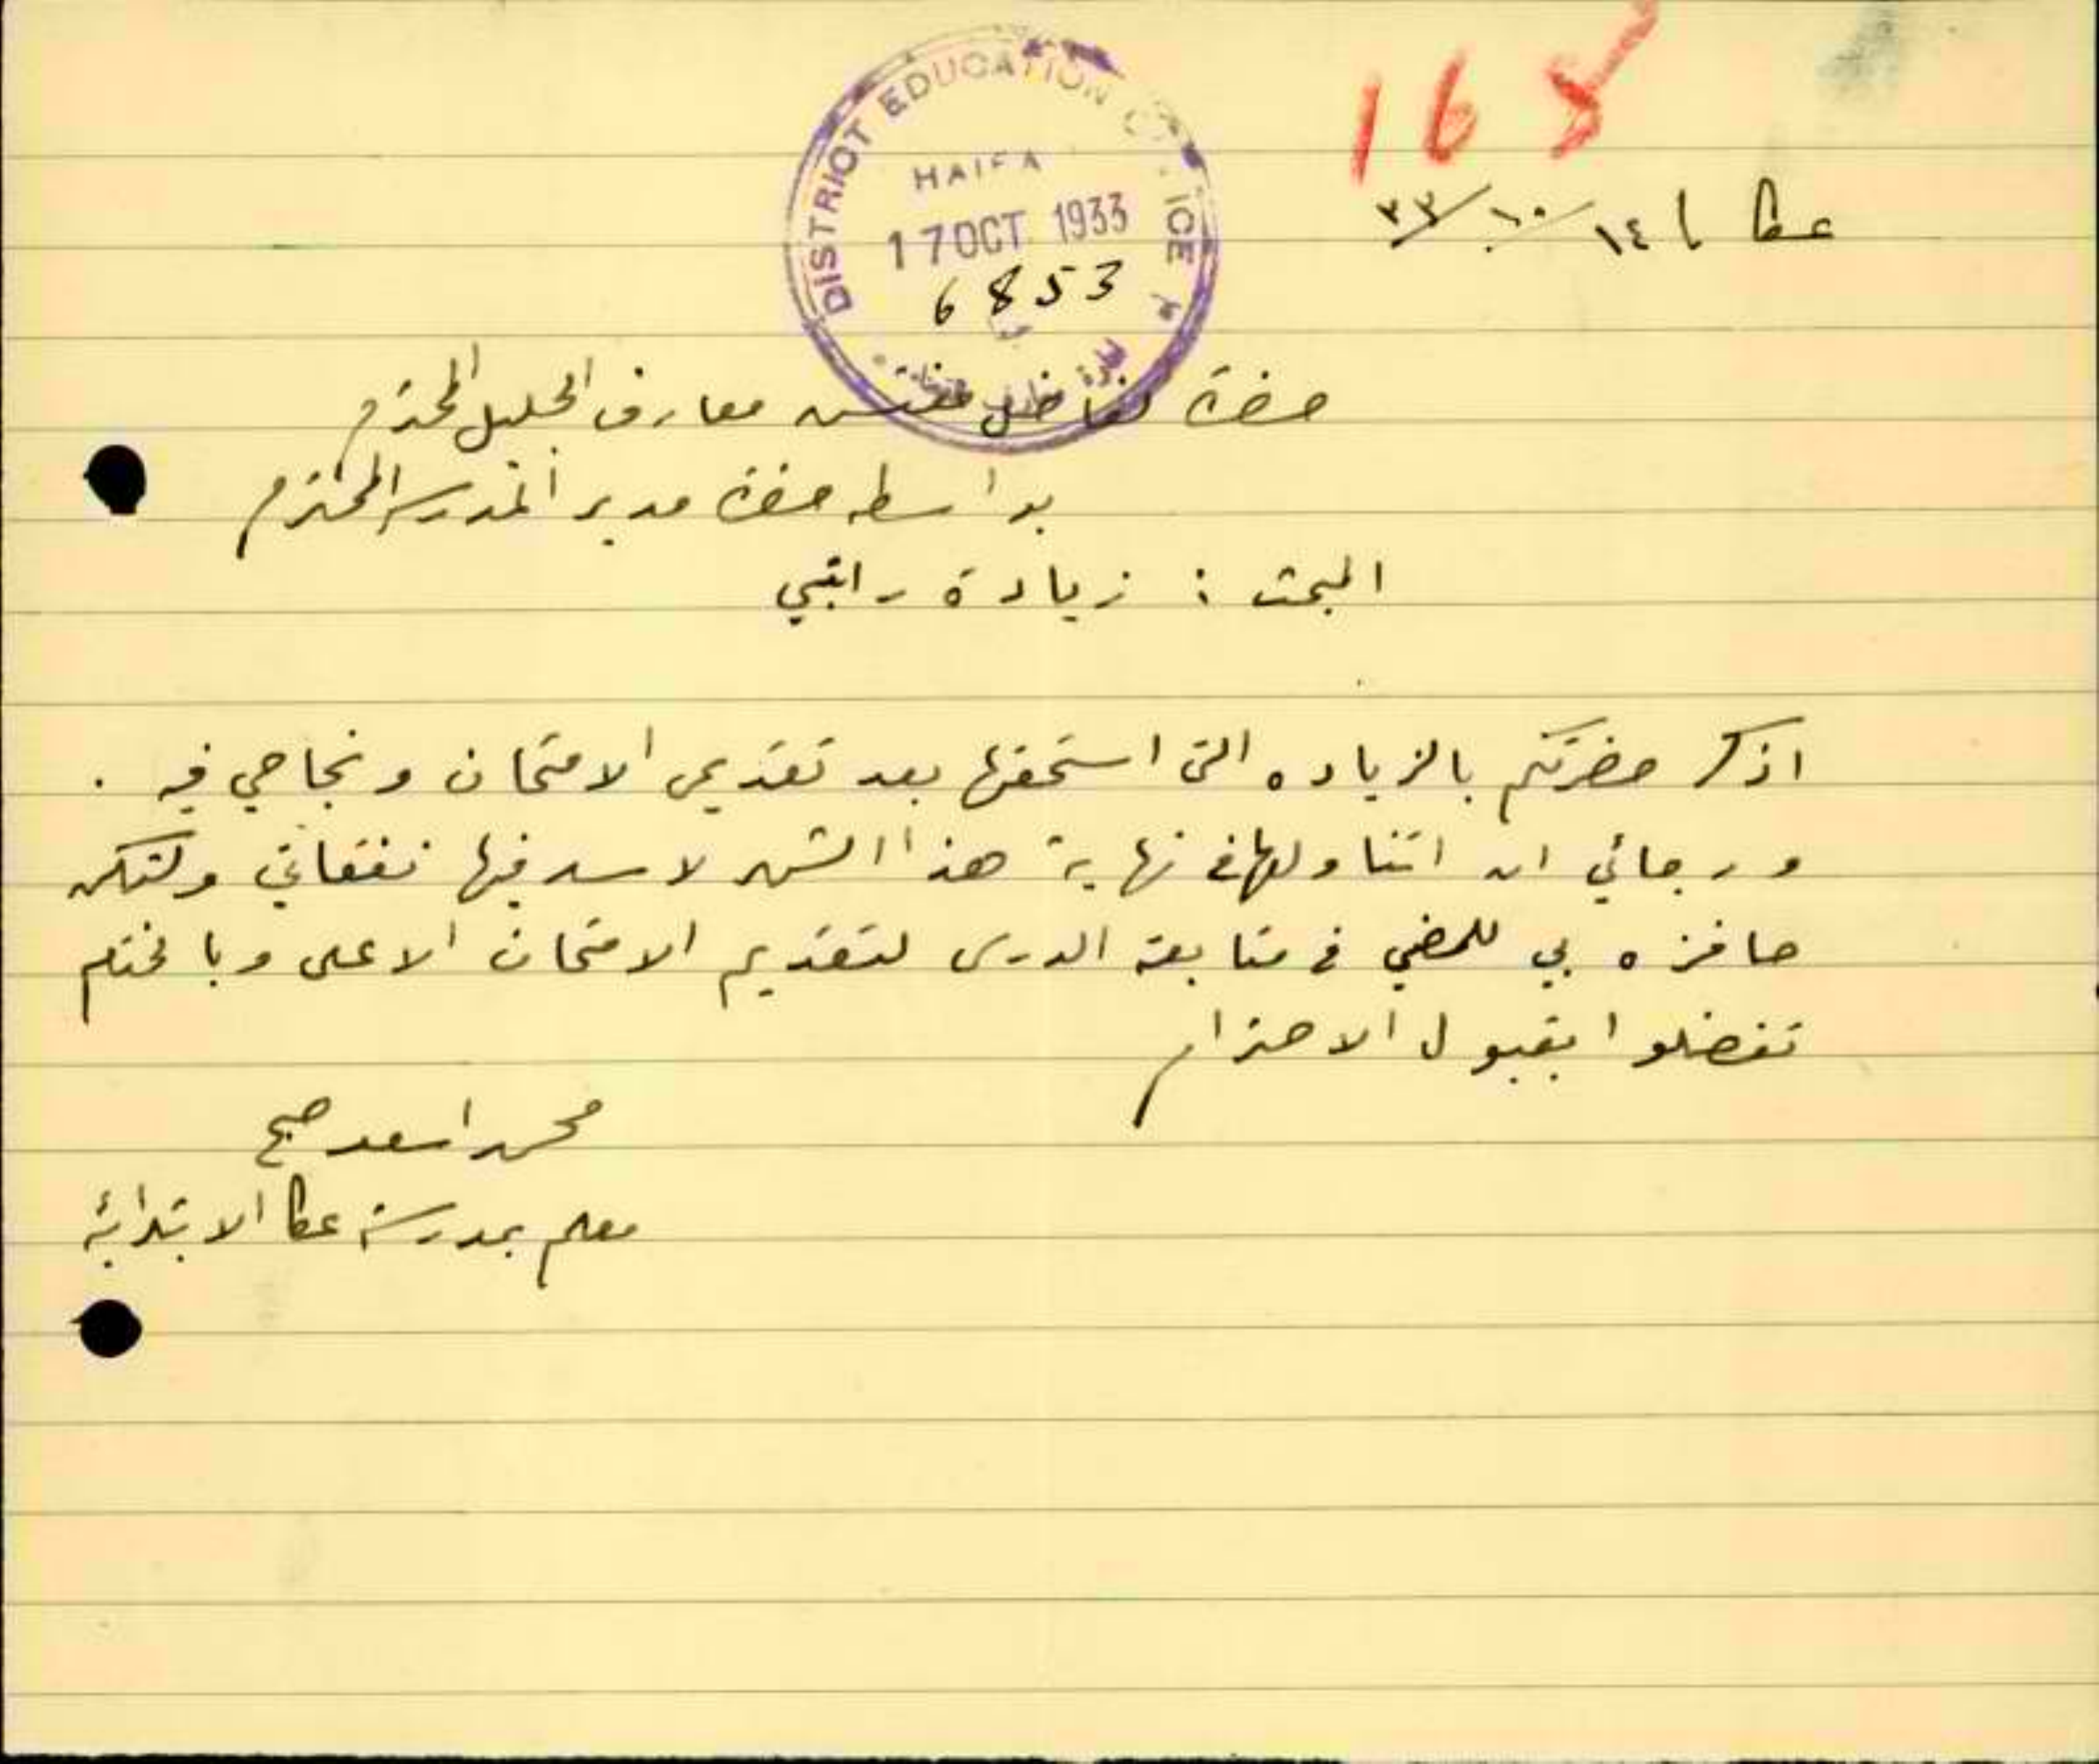 165
عكا في ١٤/١٠/٣٣
DISTRICT EDUCATION OFFICE
HAIFA
17 OCT 1933
6853
حضرة الفاضل مفتش معارف الجليل المحترم
بواسطه حضرة مدير المدرسه المحترم
المبحث : زيادة راتبي
اذكر حضرتكم بالزياده التي استحقها بعد تقديمي الامتحان ونجاحي فيه .
ورجائي ان اتناولها في نهاية هذا الشهر لاسد فيها نفقاتي ولتكن
حافزه بي للمضي في متابعة الدرس لتقديم الامتحان الاعلى وبالختام
تفضلوا بقبول الاحترام
محمد اسعد صبح
معلم بمدرسة عكا الابتدائية